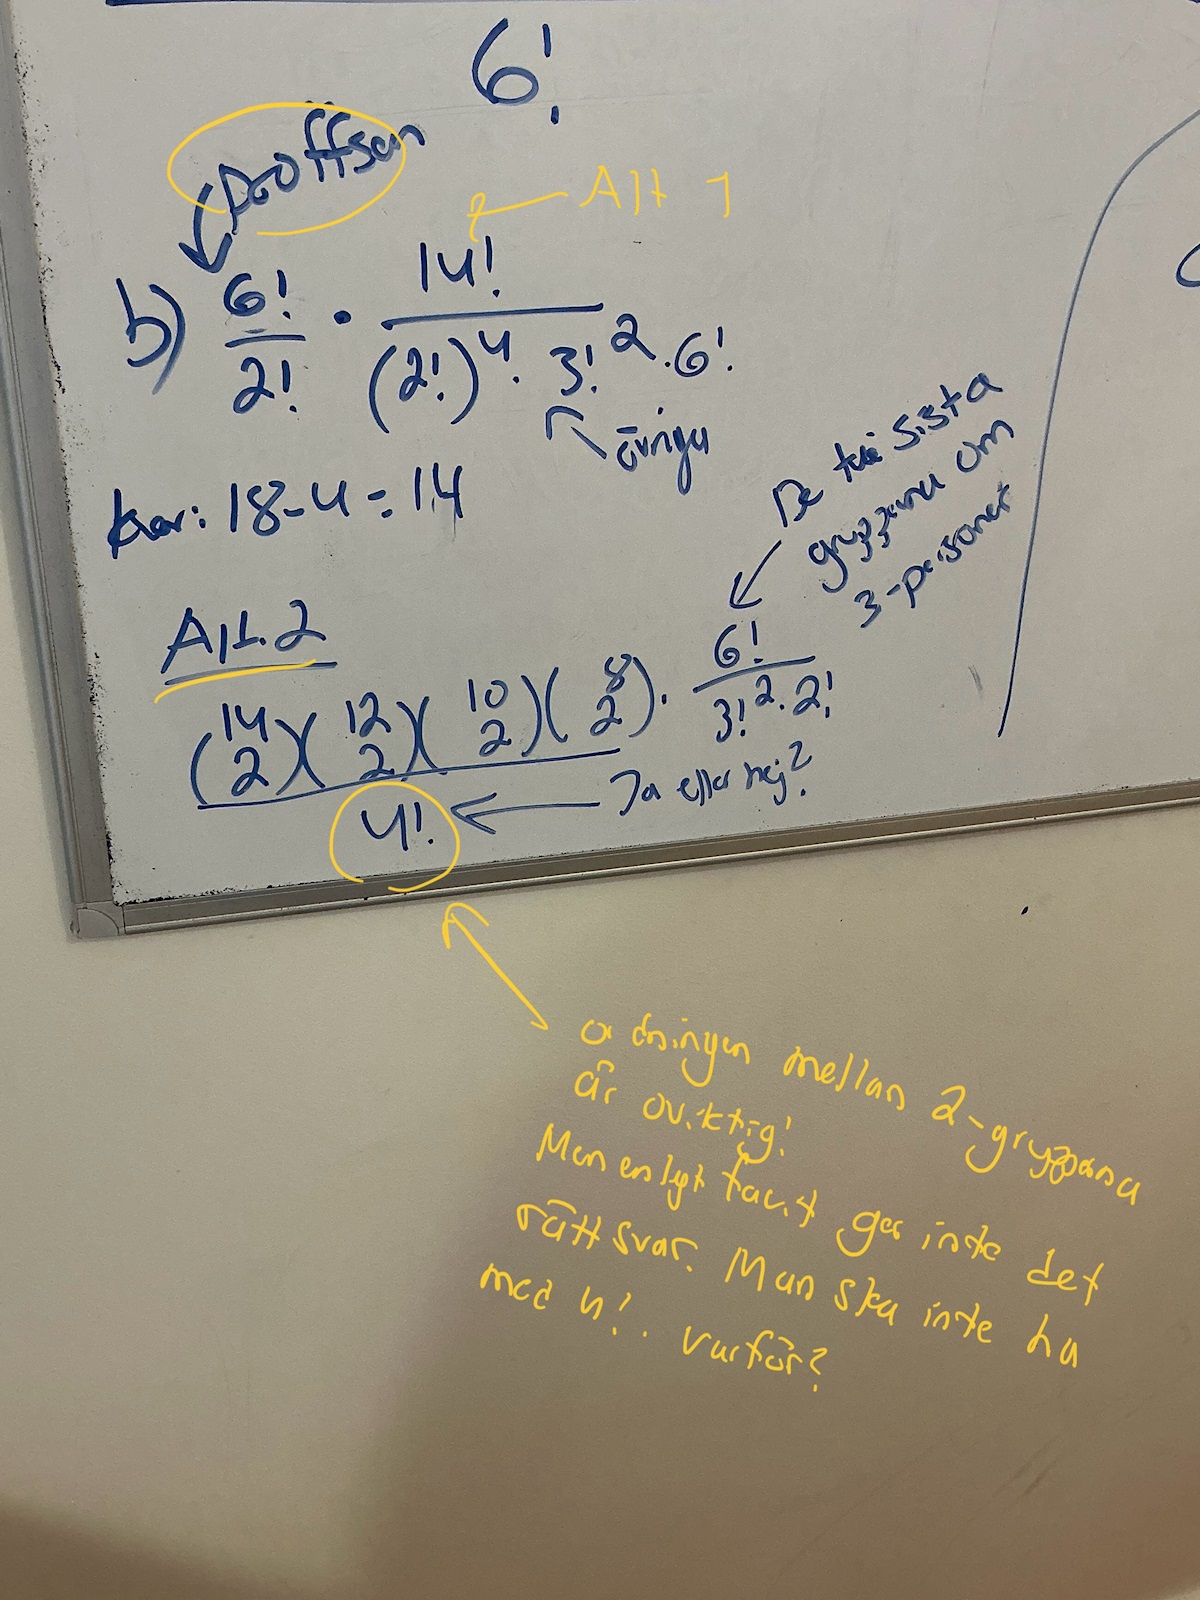 6!
Alt 1
b) 6!/2! · 14!/((2!)^4 · 3!^2 · 6!)
övriga
kvar: 18-4 = 14
De två sista
grupperna om
3-personer
Alt. 2
(14 2)(12 2)(10 2)(8 2)/4! · 6!/(3!^2 · 2!)
Ja eller nej?
ordningen mellan 2-grupperna
är oviktig!
Men enligt facit ger inte det
rätt svar. Man ska inte ha
med 4!. varför?